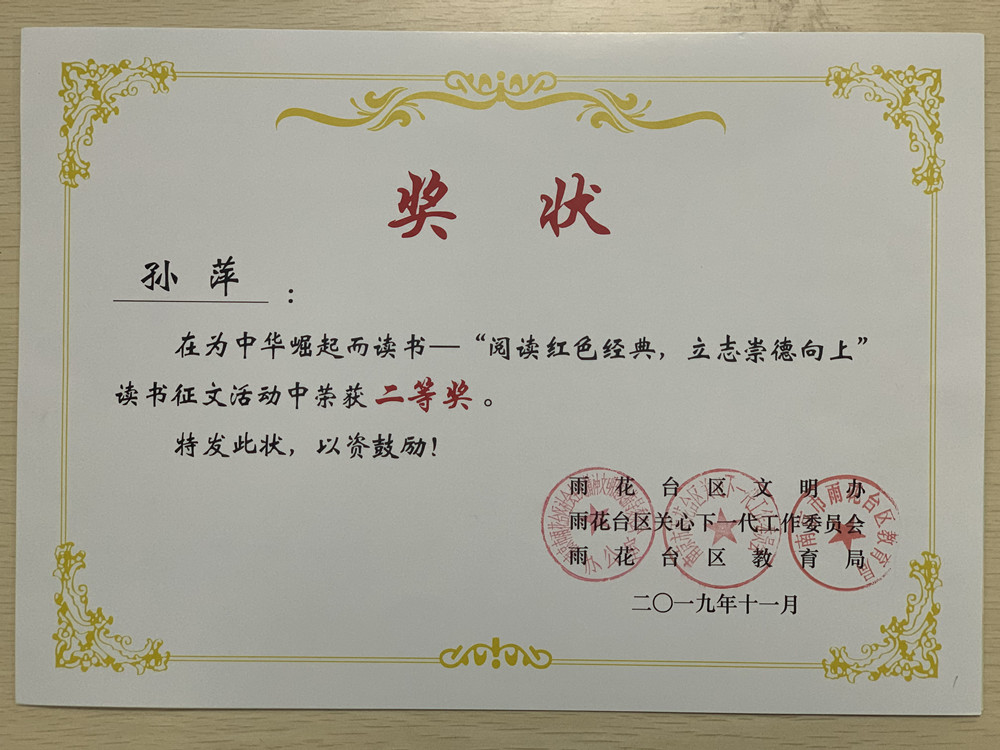 奖 状
孙 萍：
在为中华崛起而读书—“阅读红色经典，立志崇德向上”
读书征文活动中荣获 二等奖 。
特发此状，以资鼓励！
雨花台区文明办
雨花台区关心下一代工作委员会
雨花台区教育局
二〇一九年十一月